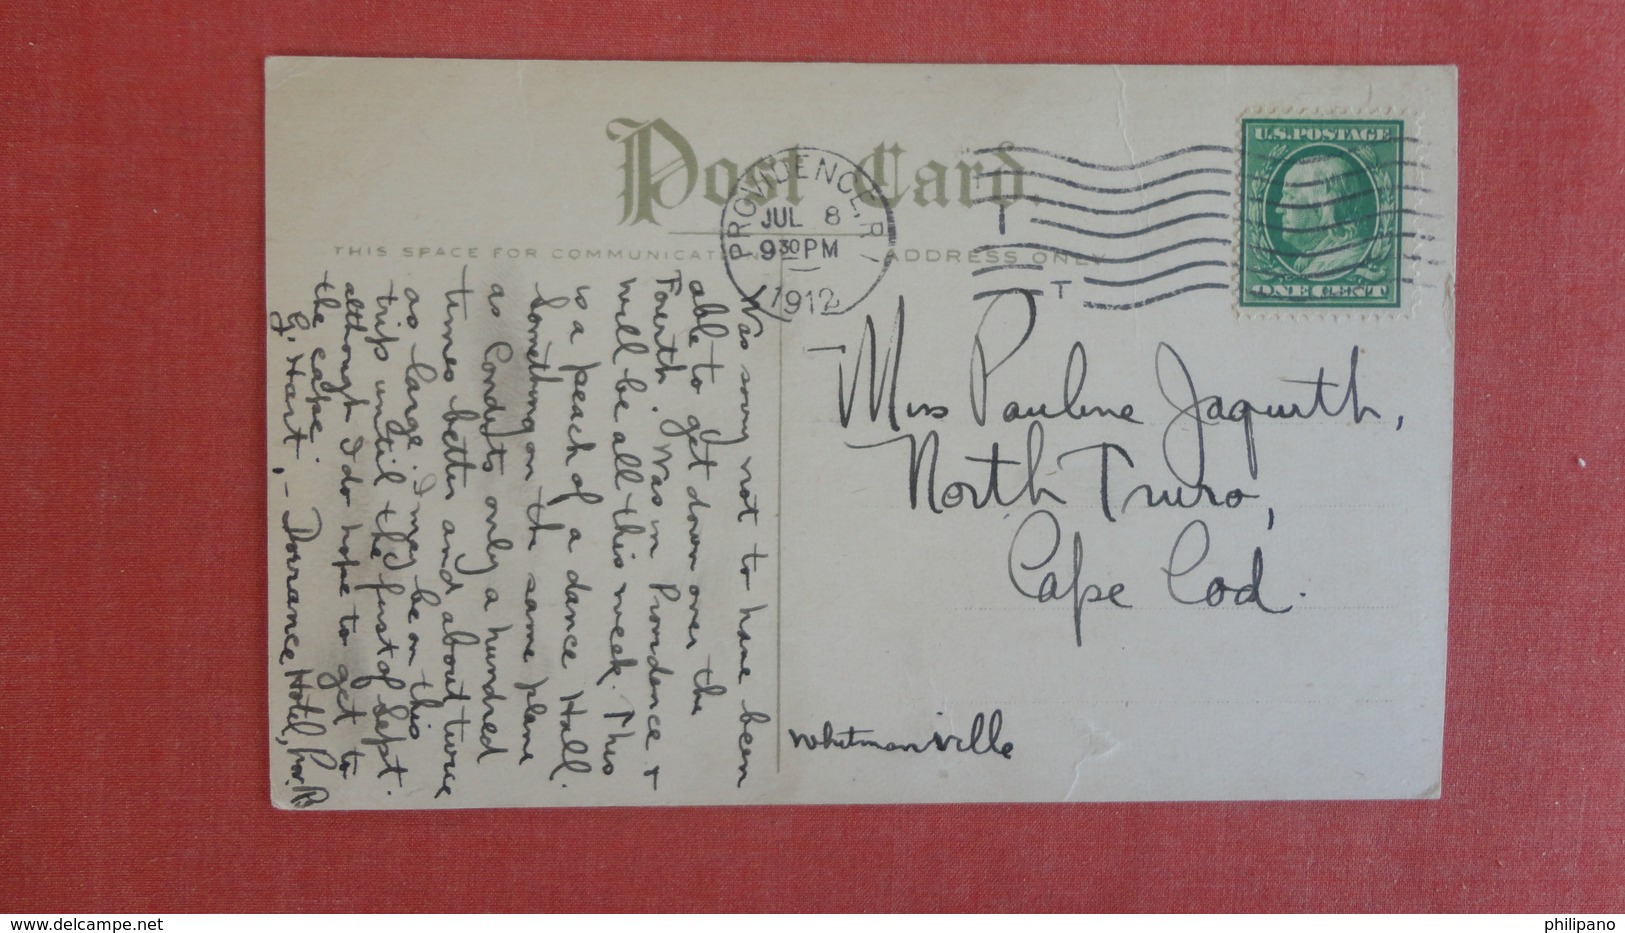 Post Card
THIS SPACE FOR COMMUNICATION
ADDRESS ONLY
PROVIDENCE, R.I.
JUL 8
9 30 PM
1912
T
U.S. POSTAGE
ONE CENT
Was sorry not to have been
able to get down over the
Fourth. Was in Providence &
will be all this week. This
is a peach of a dance Hall.
Something on the same plane
as Condyts only a hundred
times better and about twice
as large. I may be on this
trip until the first of Sept.
although I do hope to get to
the cape.
G. Hart, - Dorrance Hotel, Prov. R
Miss Pauline Jaquith,
North Truro,
Cape Cod.
Whitmanville
www.delcampe.net
philipano